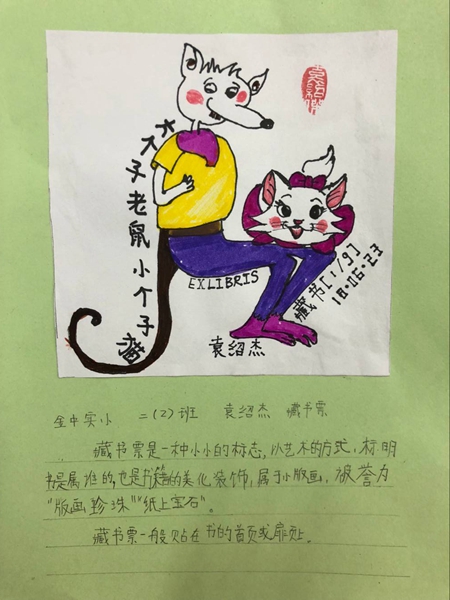 大个子老鼠小个子猫
EXLIBRIS
藏书[1/9]
18.06.23
袁绍杰
金中实小 二(2)班 袁绍杰 藏书票
藏书票是一种小小的标志,以艺术的方式,标明
书是属谁的,也是书籍的美化装饰,属于小版画,被誉为
“版画珍珠”“纸上宝石”。
藏书票一般贴在书的首页或扉页。